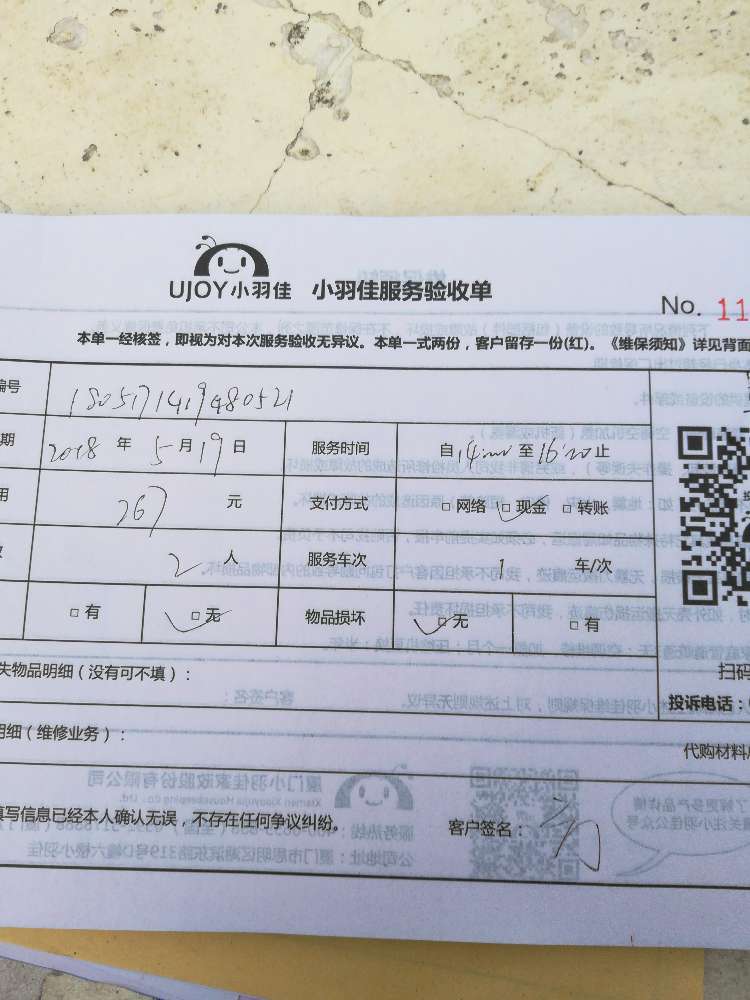 UJOY小羽佳 小羽佳服务验收单
No. 11
本单一经核签，即视为对本次服务验收无异议。本单一式两份，客户留存一份(红)。《维保须知》详见背面
编号 1805171419480521
期 2018 年 5 月 19 日 服务时间 自 14:00 至 16:20 止
用 267 元 支付方式 □ 网络 □ 现金 □ 转账
2 人 服务车次 1 车/次
□ 有 □ 无 物品损坏 □ 无 □ 有
失物品明细（没有可不填）：
扫码
投诉电话：
明细（维修业务）：
代购材料
填写信息已经本人确认无误，不存在任何争议纠纷。 客户签名：